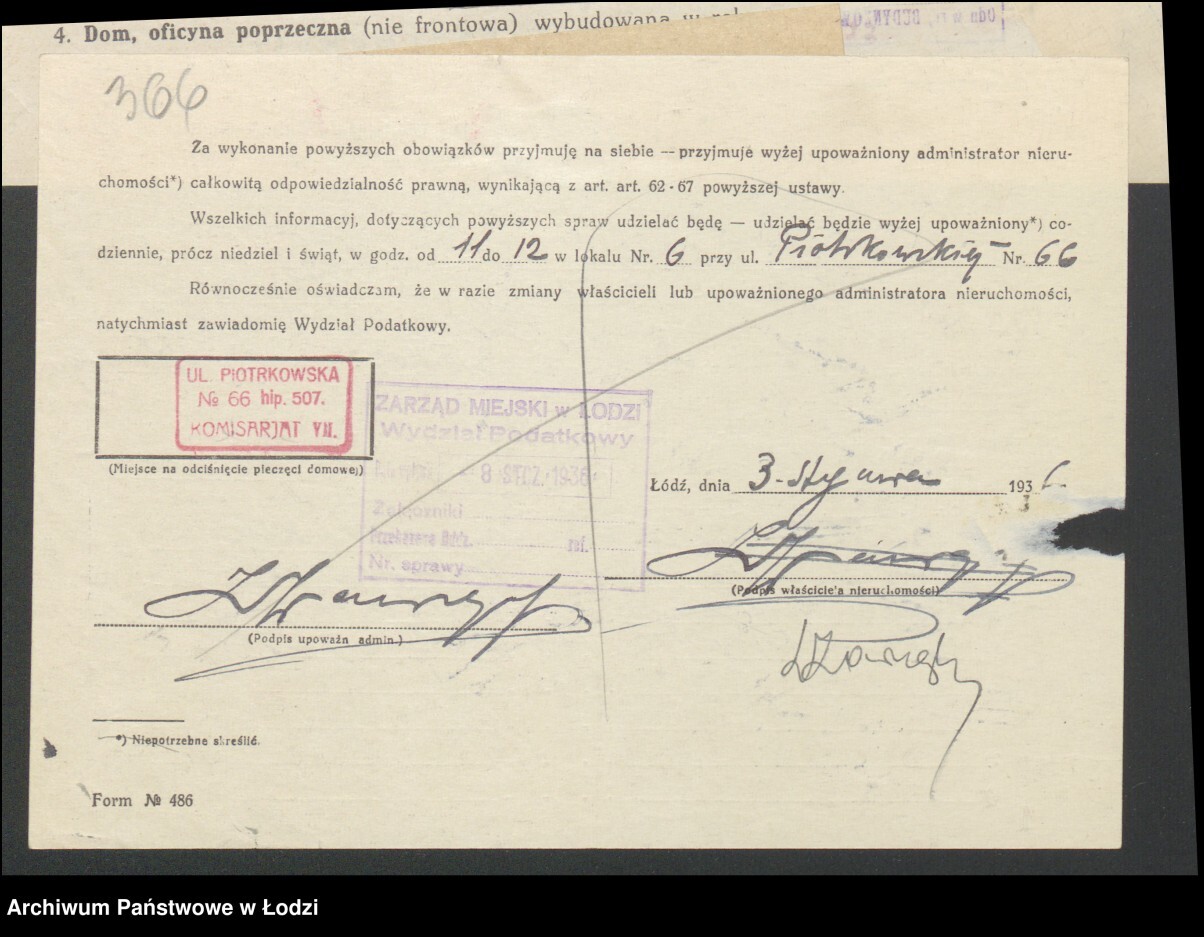 4. Dom, oficyna poprzeczna (nie frontowa) wybudowana w
366
Za wykonanie powyższych obowiązków przyjmuję na siebie — przyjmuje wyżej upoważniony administrator nieru-
chomości*) całkowitą odpowiedzialność prawną, wynikającą z art. art. 62-67 powyższej ustawy.
Wszelkich informacyj, dotyczących powyższych spraw udzielać będę — udzielać będzie wyżej upoważniony*) co-
dziennie, prócz niedziel i świąt, w godz. od 11 do 12 w lokalu Nr. 6 przy ul. Piotrkowskiej Nr. 66
Równocześnie oświadczam, że w razie zmiany właścicieli lub upoważnionego administratora nieruchomości,
natychmiast zawiadomię Wydział Podatkowy.
UL. PIOTRKOWSKA
№ 66 hip. 507.
KOMISARJAT VII.
(Miejsce na odciśnięcie pieczęci domowej)
ZARZĄD MIEJSKI w ŁODZI
Wydział Podatkowy
- 8 STCZ. 1936
Załączniki
ref.
Nr. sprawy
Łódź, dnia 3. Stycznia 1936
(Podpis właściciela nieruchomości)
(Podpis upoważn admin.)
*) Niepotrzebne skreślić.
Form № 486
Archiwum Państwowe w Łodzi